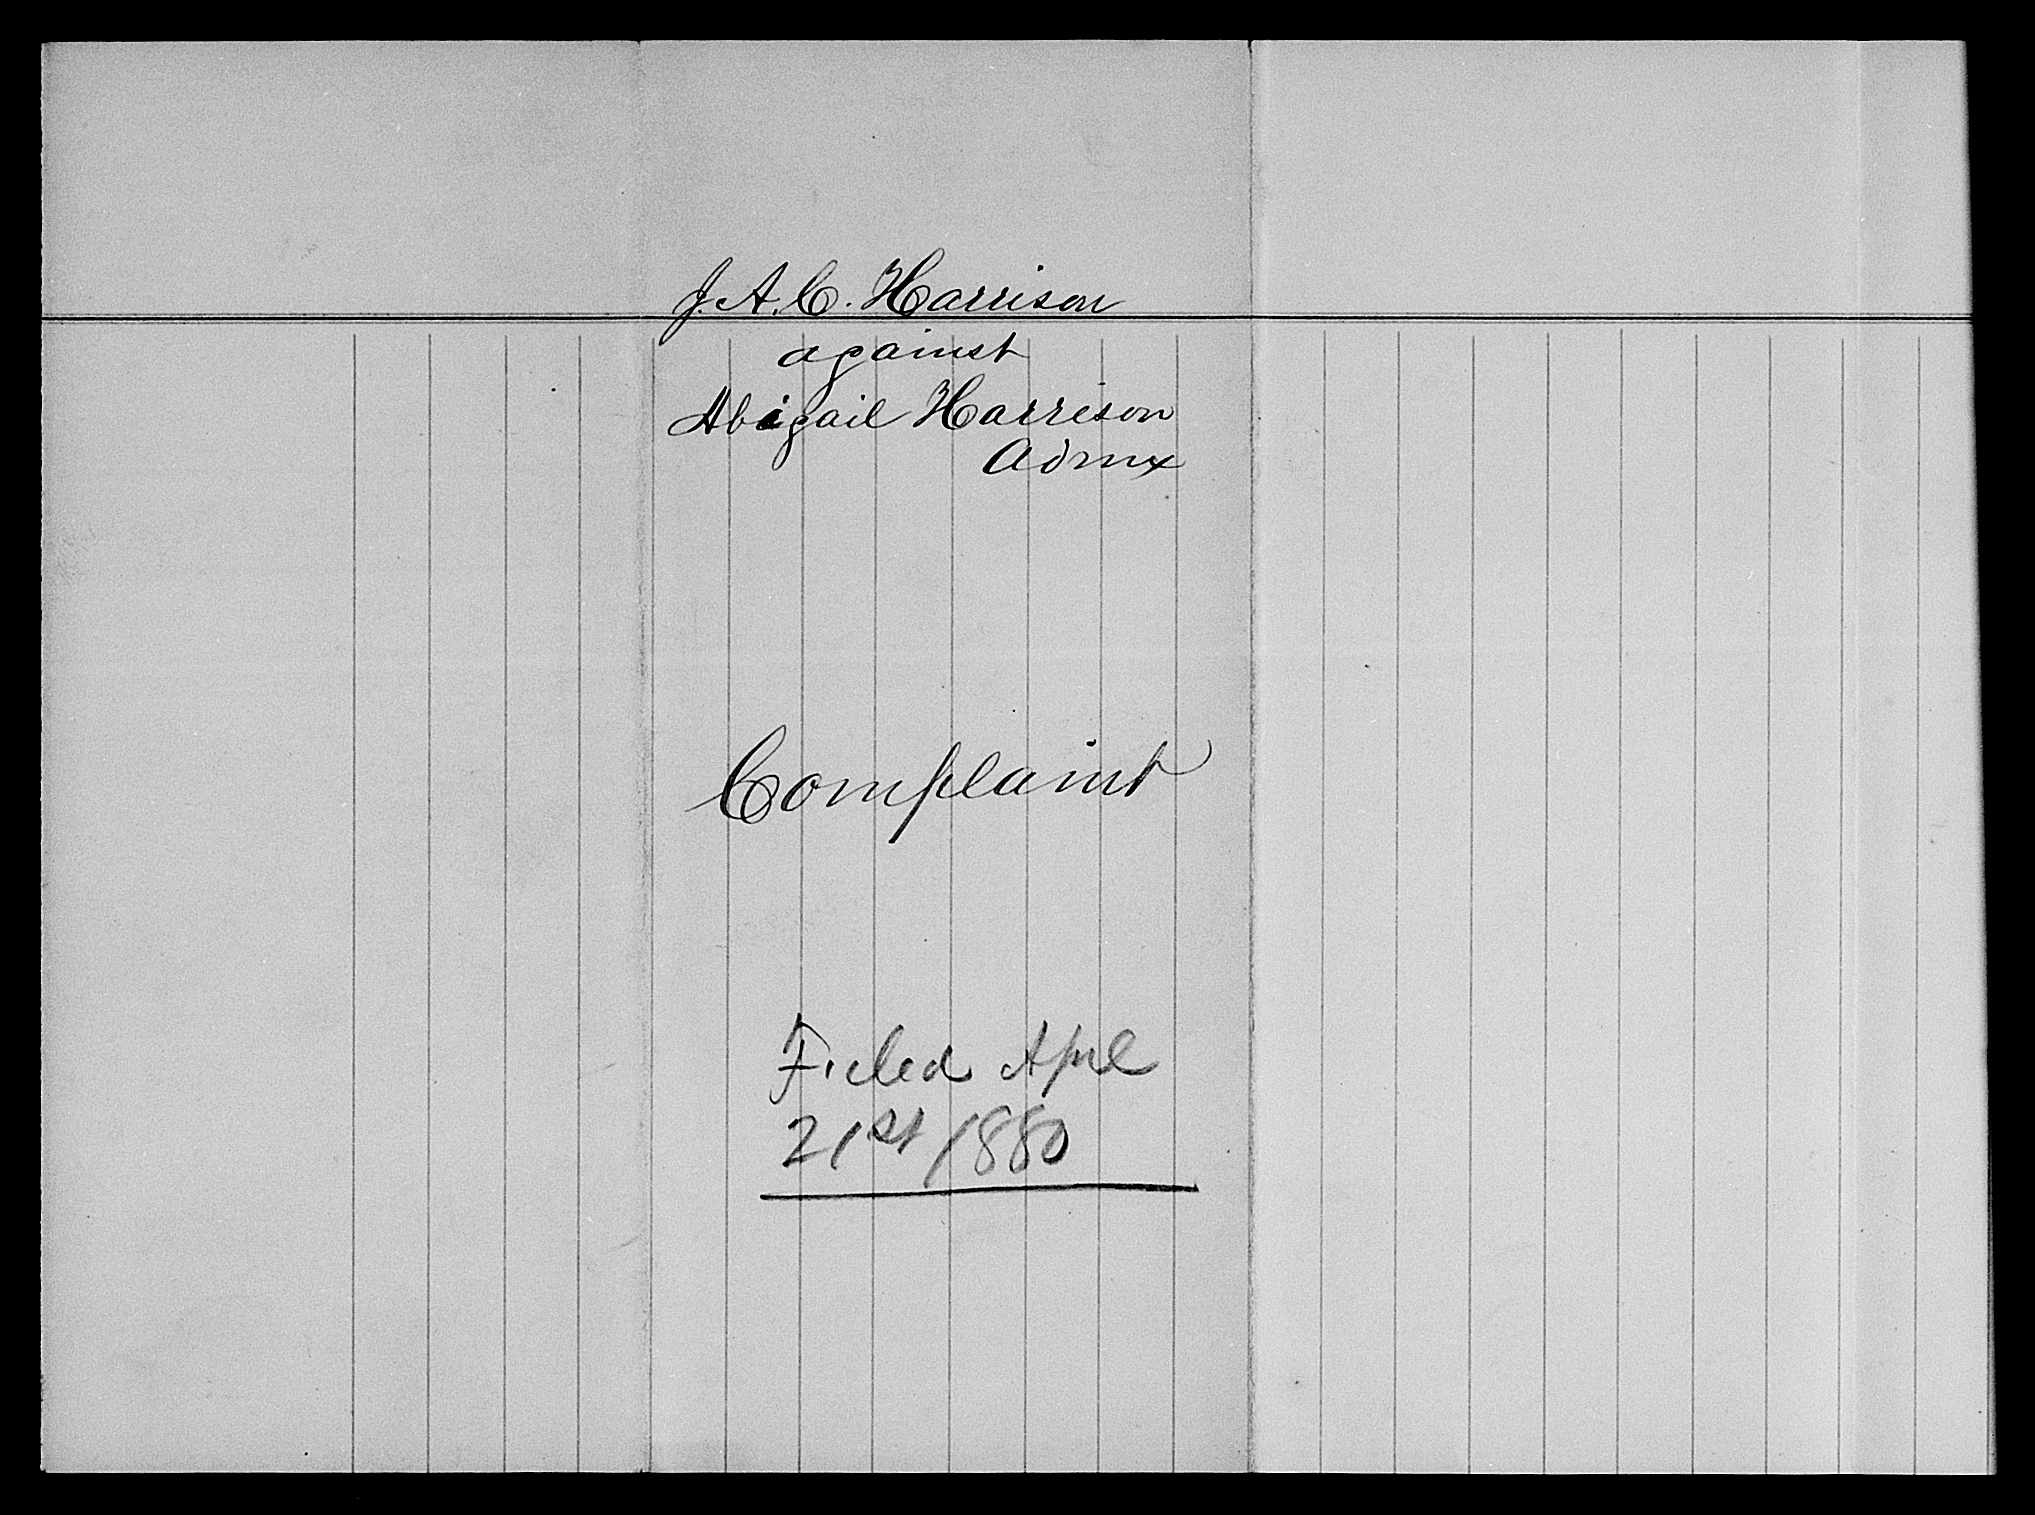 J. A. C. Harrison
against
Abigail Harrison
Admx
Complaint
Filed Aprl
21st 1880